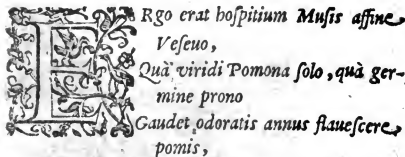 ERgo erat hoſpitium Muſis affine
Veſeuo,
Quà viridi Pomona ſolo, quà ger-
mine prono
Gaudet odoratis annus flaueſcere
pomis,